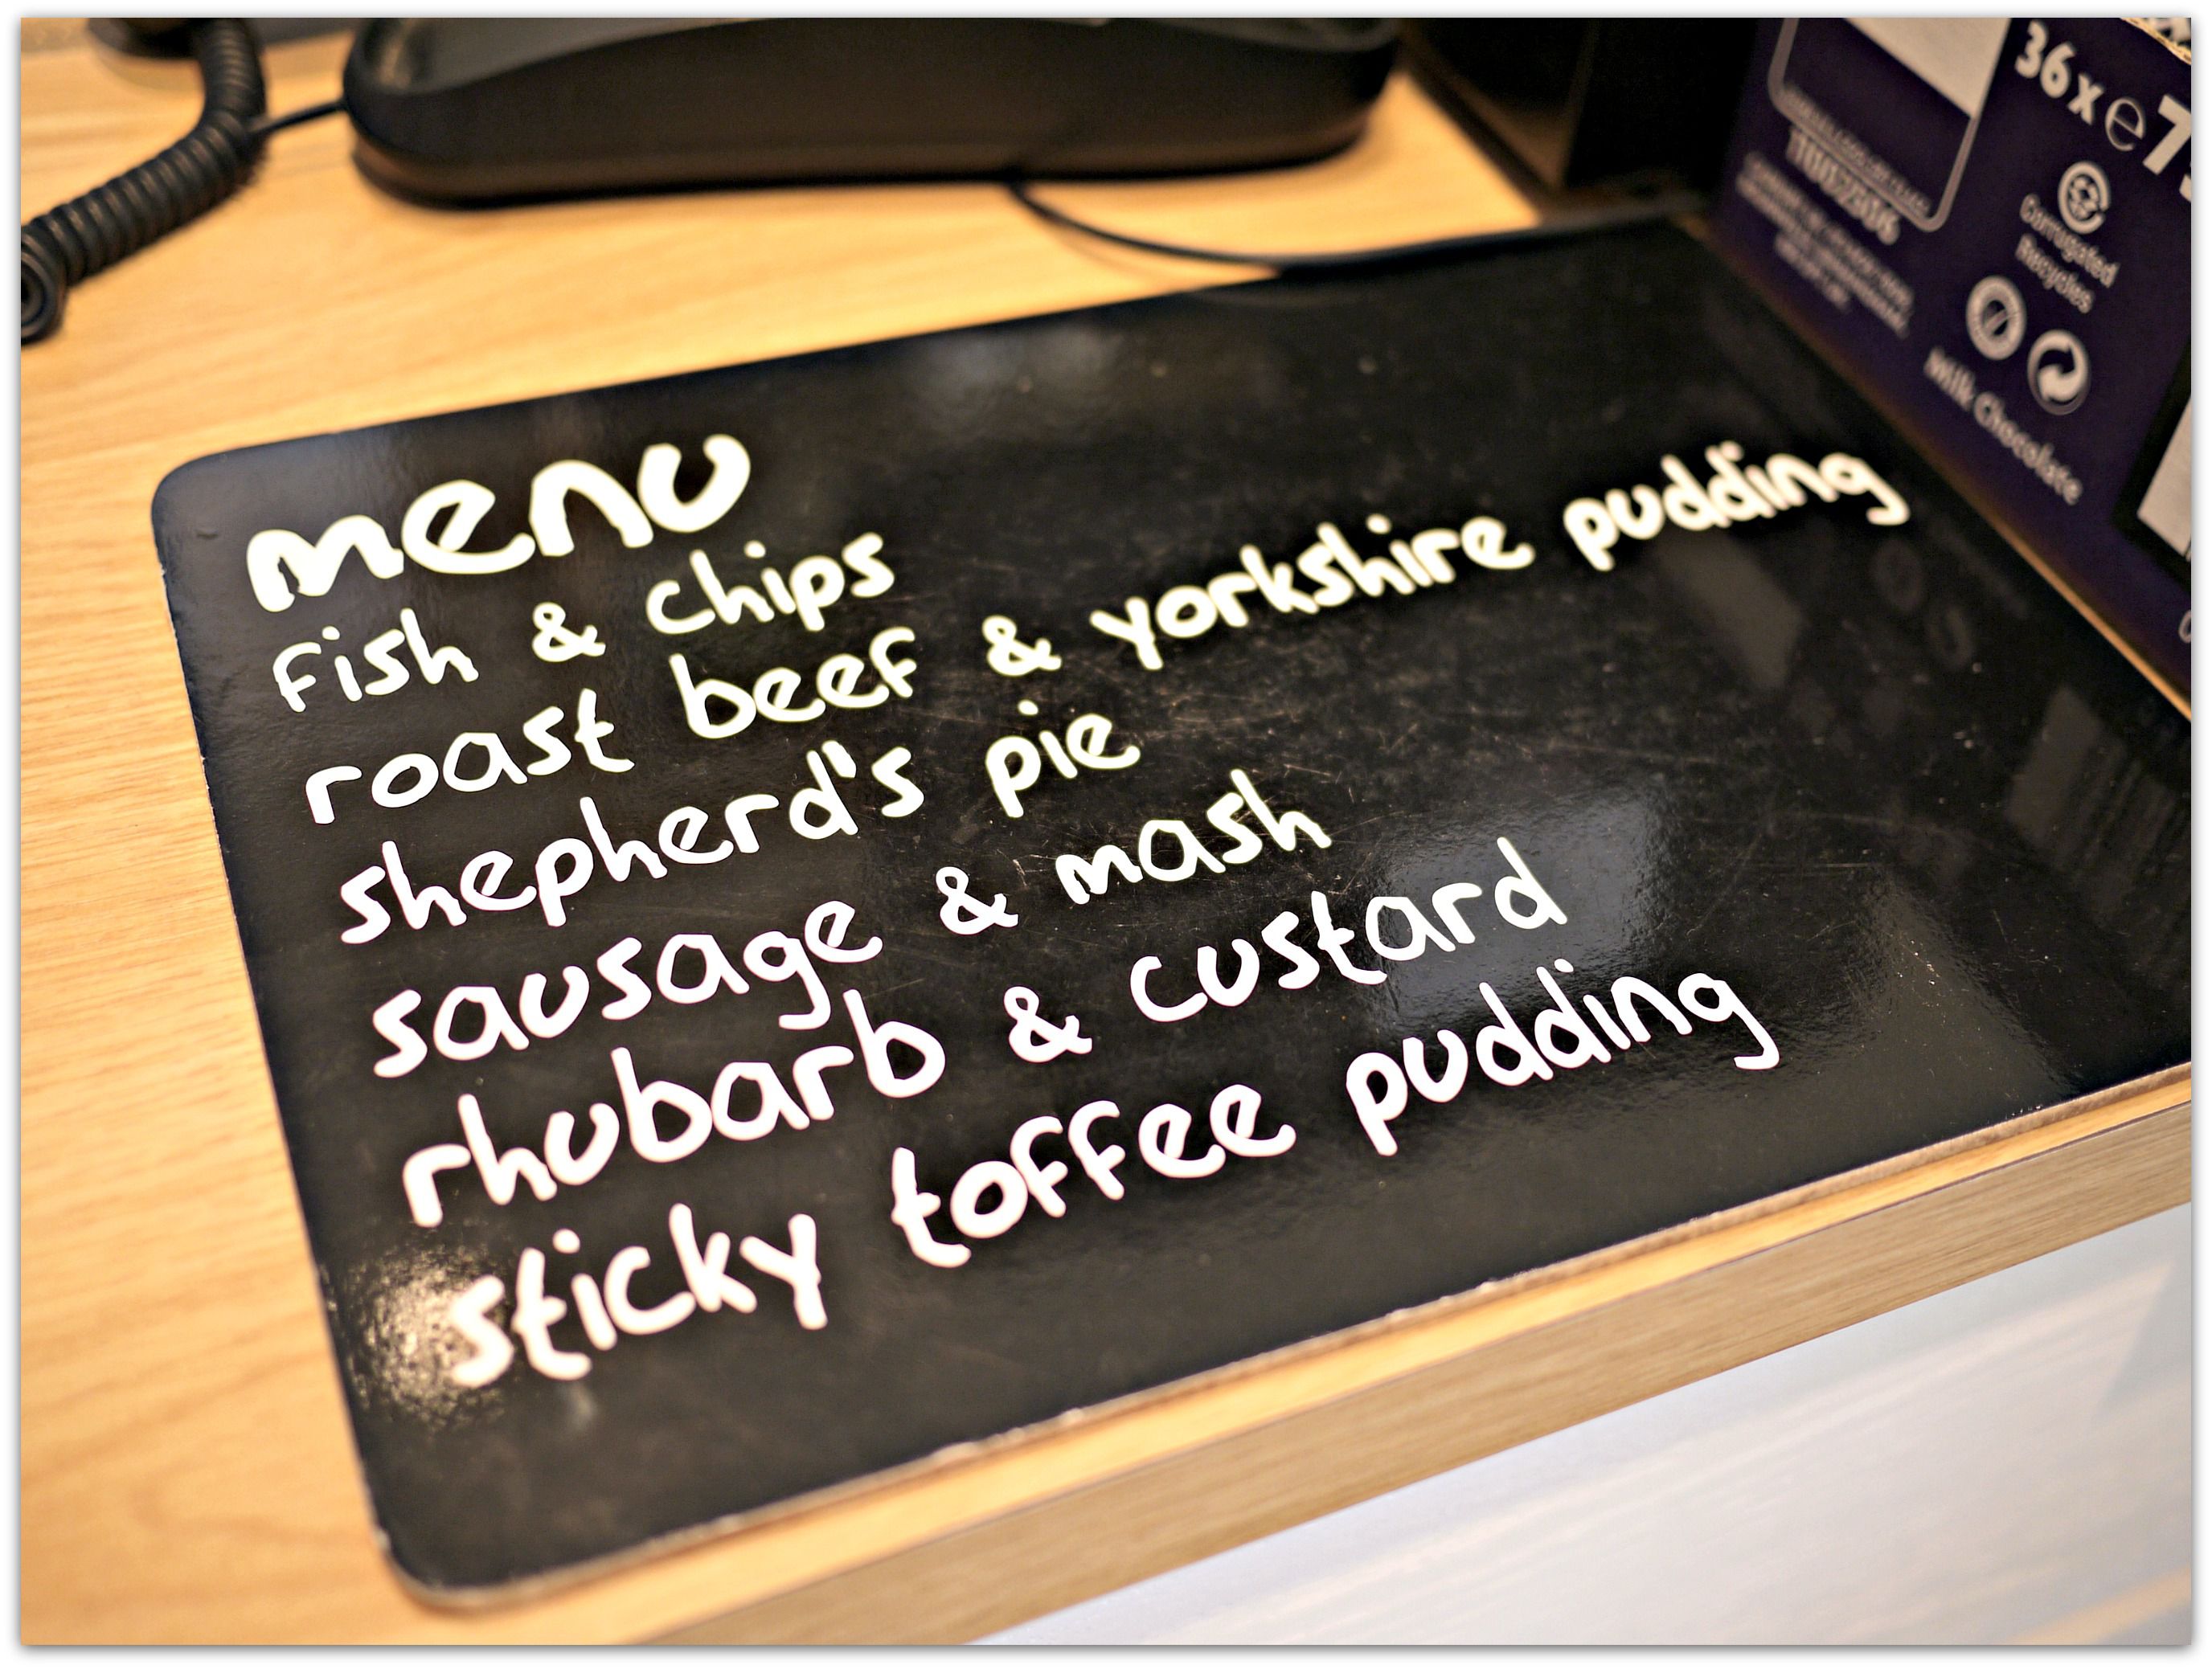 menu
fish & chips
roast beef & yorkshire pudding
shepherd's pie
sausage & mash
rhubarb & custard
sticky toffee pudding
36 x e 7
Corrugated
Recycles
Milk Chocolate